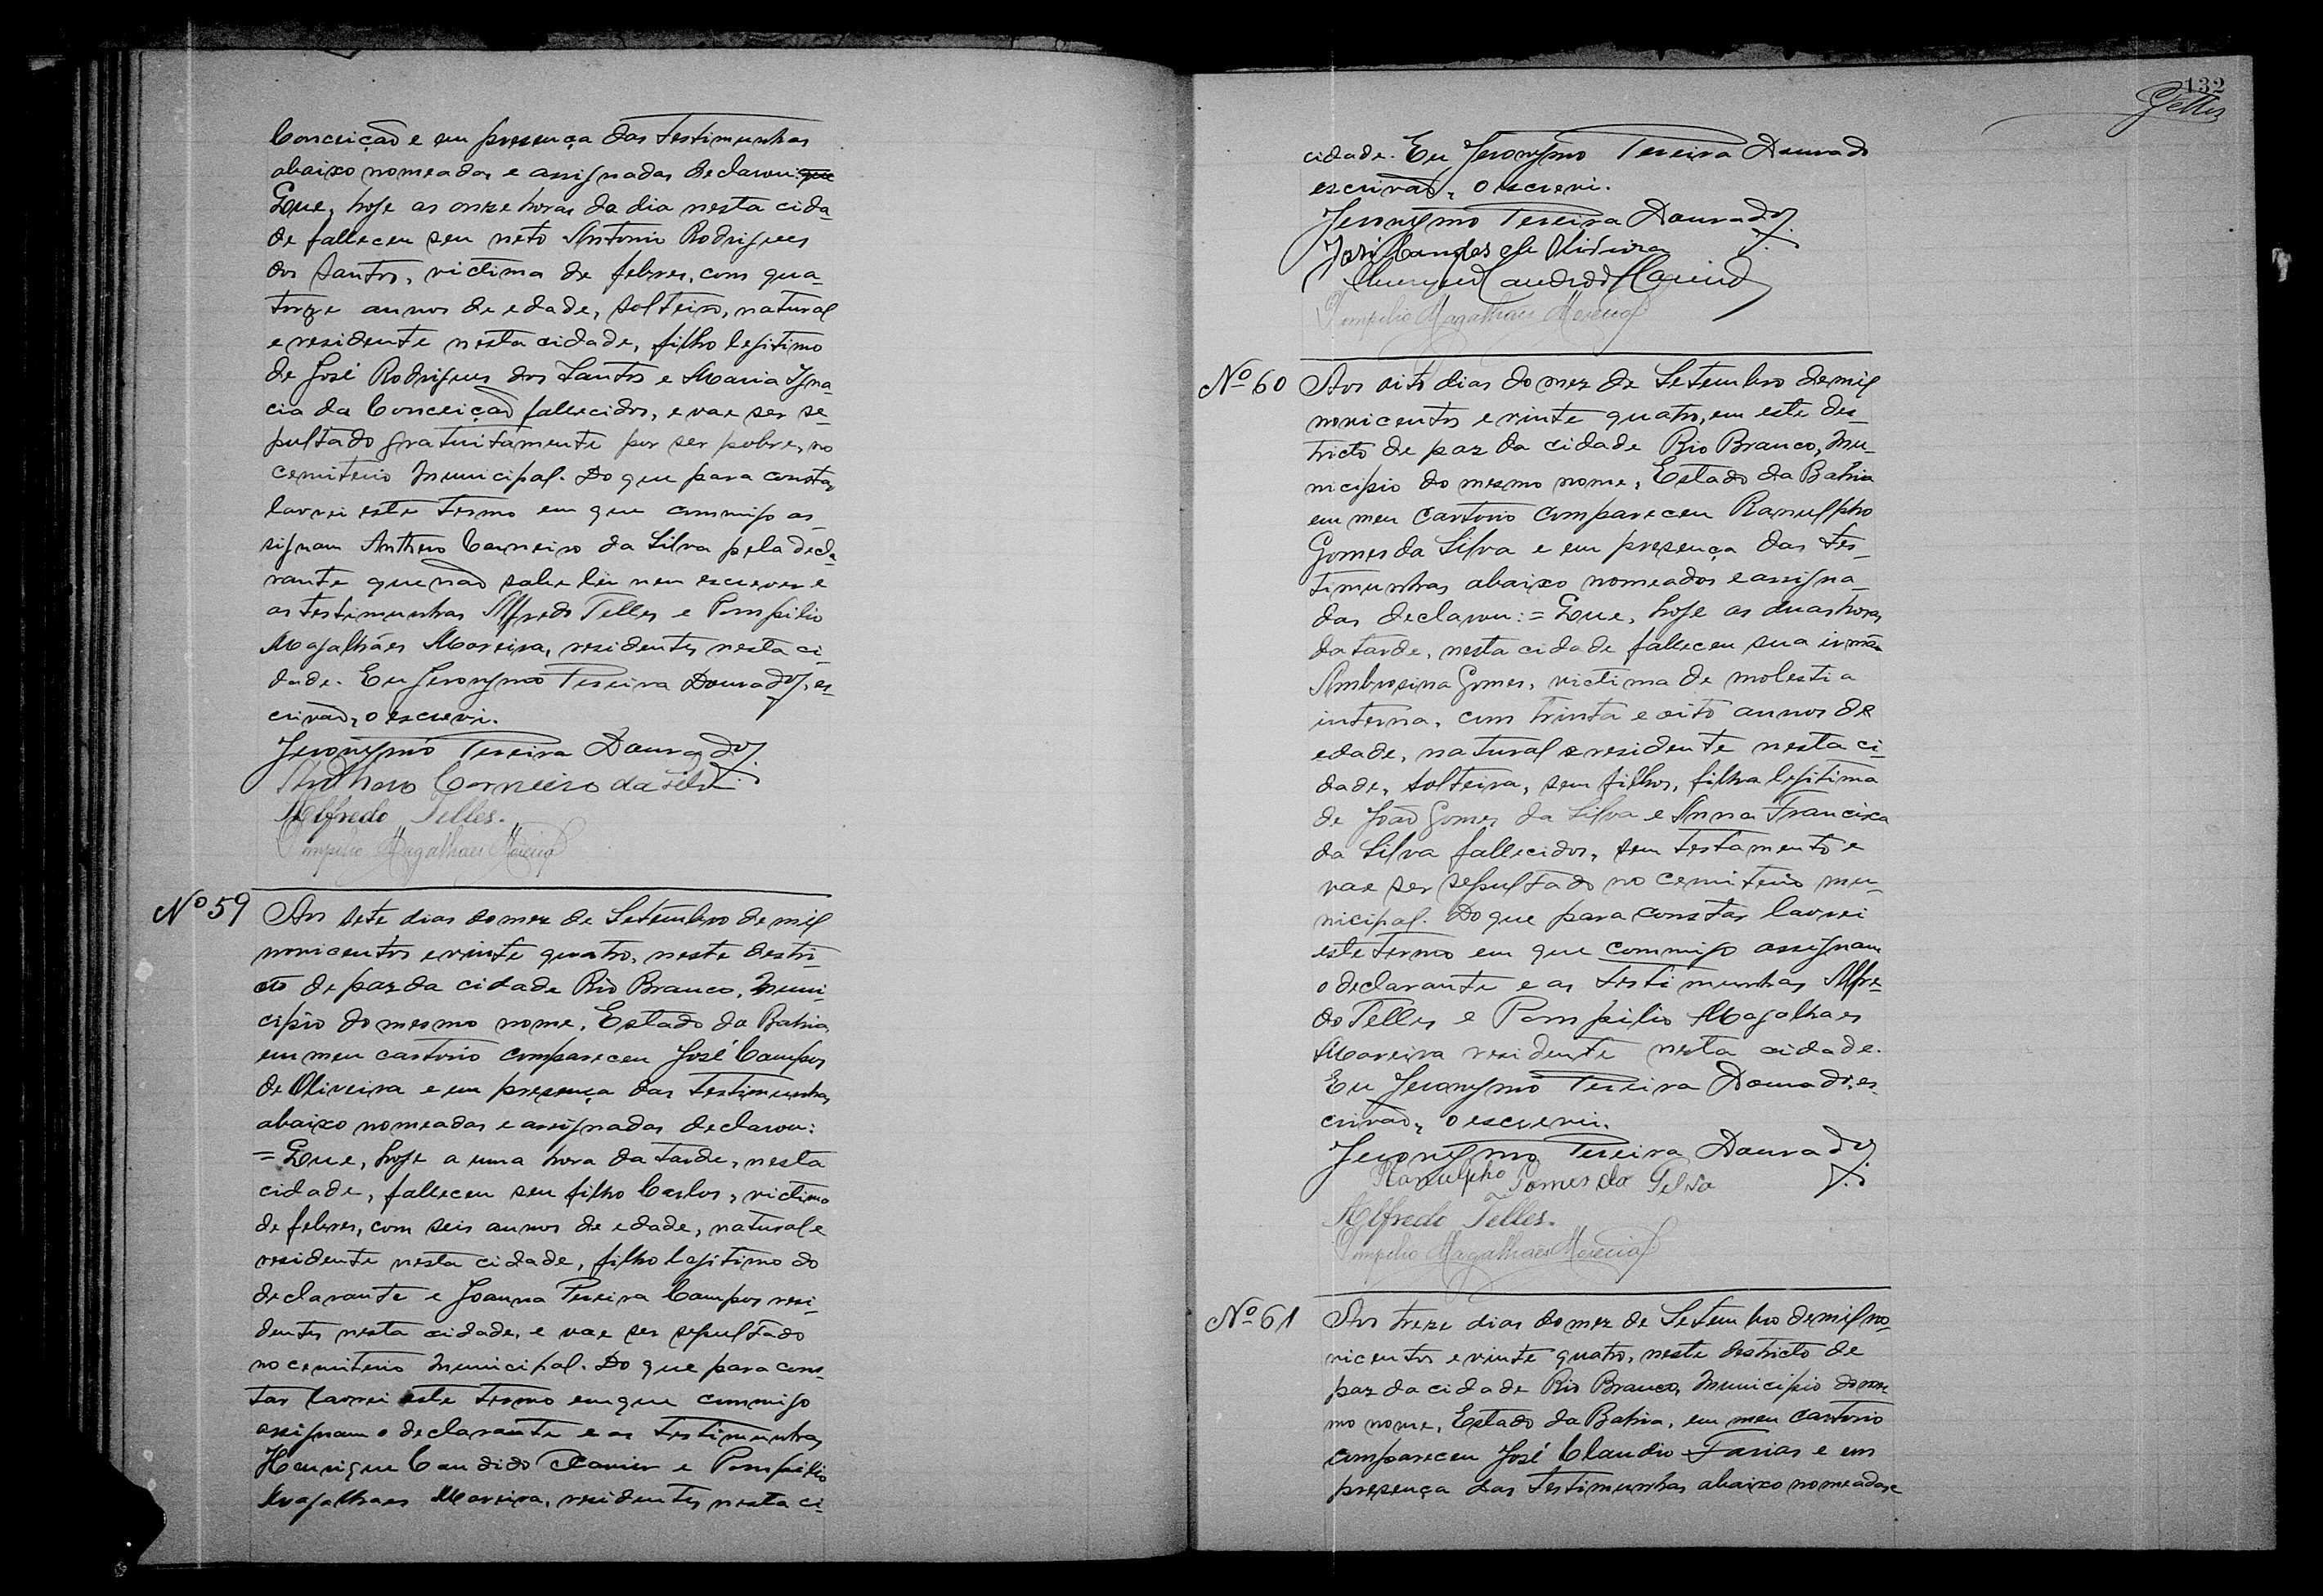 Conceição e em presença das testimunhas
abaixo nomeadas e assignadas declarou: que
Que, hoje as onze horas do dia nesta cida-
de falleceu seu neto Antonio Rodrigues
dos Santos, victima de febres, com qua-
torze annos de edade, solteiro, natural
e residente nesta cidade, filho legitimo
de José Rodrigues dos Santos e Maria Igna-
cia da Conceição fallecidos, e vae ser se-
pultado gratuitamente por ser pobre, no
cemiterio Municipal. Do que para constar
lavrei este termo em que commigo as-
signam Anthero Carneiro da Silva pela decla-
rante que não sabe ler nem escrever e
as testimunhas Alfredo Telles e Pompilio
Magalhães Moreira, residentes nesta ci-
dade. Eu Jeronymo Pereira Dourado, es-
crivão, o escrevi.
Jeronymo Pereira Dourado
Anthero Carneiro da Silva
Alfredo Telles.
Pompilio Magalhães Moreira
Nº 59 Aos sete dias do mez de Setembro de mil
novicentos e vinte quatro, neste destri-
cto de paz da cidade Rio Branco, Muni-
cipio do mesmo nome, Estado da Bahia,
em meu cartorio compareceu José Campos
de Oliveira e em presença das testimunhas
abaixo nomeadas e assignadas declarou:
= Que, hoje a uma hora da tarde, nesta
cidade, falleceu seu filho Carlos, victima
de febres, com seis annos de edade, natural e
residente nesta cidade, filho legitimo do
declarante e Joanna Pereira Campos resi-
dentes nesta cidade, e vae ser sepultado
no cemiterio Municipal. Do que para cons-
tar lavrei este termo em que commigo
assignam o declarante e as testimunhas
Henrique Candido e Pompilio
Magalhaes Moreira, residentes nesta ci-
132
Telles
cidade. Eu Jeronymo Pereira Dourado
escrivão, o escrevi.
Jeronymo Pereira Dourado
José Campos de Oliveira
Henrique Candido
Pompilio Magalhães Moreira
Nº 60 Aos oito dias do mez de Setembro de mil
novicentos e vinte quatro, em este des-
tricto de paz da cidade Rio Branco, Mu-
nicipio do mesmo nome, Estado da Bahia
em meu Cartorio compareceu Ranulpho
Gomes da Silva e em presença das tes-
timunhas abaixo nomeados e assigna-
das declarou: = Que, hoje as duas horas
da tarde, nesta cidade falleceu sua irmã
Ambrosina Gomes, victima de molestia
interna, com trinta e oito annos de
edade, natural e residente nesta ci-
dade, solteira, sem filhos, filha legitima
de João Gomes da Silva e Anna Francisca
da Silva fallecidos, sem testamento e
vae ser sepultado no cemiterio mu-
nicipal. Do que para constar lavrei
este termo em que commigo assignam
o declarante e as testimunhas Alfre-
do Telles e Pompilio Magalhaes
Moreira residente nesta cidade.
Eu Jeronymo Pereira Dourado, es-
crivão, o escrevi.
Jeronymo Pereira Dourado
Ranulpho Gomes da Silva
Alfredo Telles.
Pompilio Magalhães Moreira
Nº 61 Aos treze dias do mez de Setembro de mil no-
vicentos e vinte quatro, neste destricto de
paz da cidade Rio Branco, Municipio do mes-
mo nome, Estado da Bahia, em meu Cartorio
compareceu José Claudio Farias e em
presença das testimunhas abaixo nomeadas e